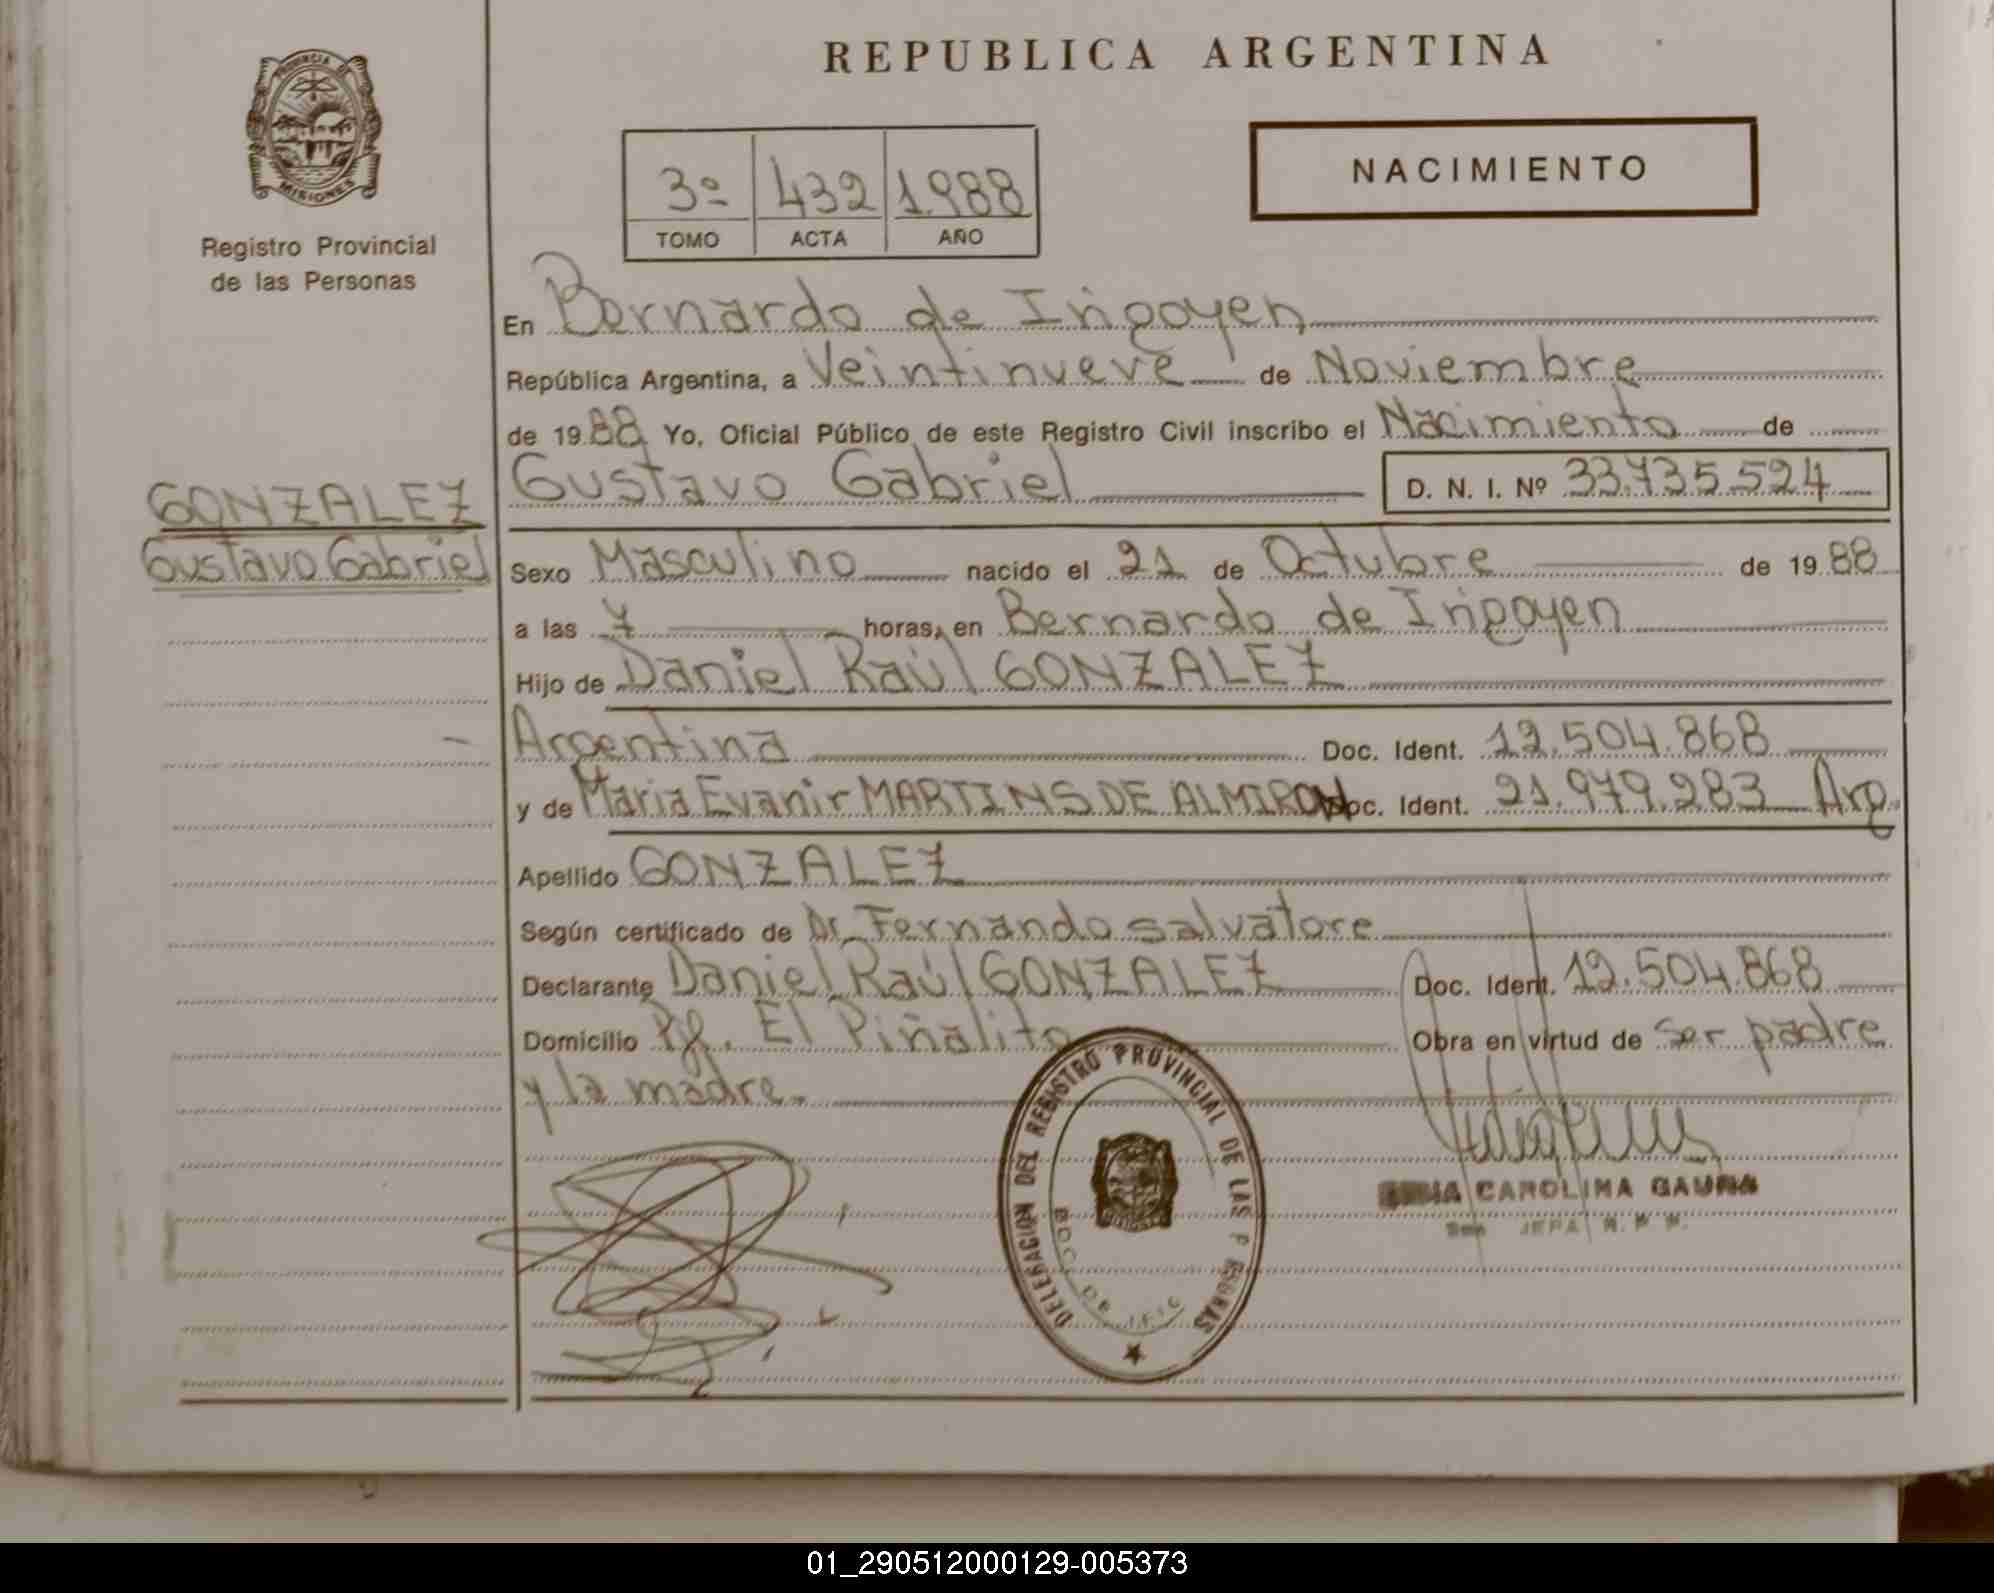 REPUBLICA ARGENTINA
PROVINCIA DE
MISIONES
Registro Provincial
de las Personas
3º 432 1.988
TOMO ACTA AÑO
NACIMIENTO
En Bernardo de Irigoyen
República Argentina, a Veintinueve de Noviembre
de 19 88 Yo, Oficial Público de este Registro Civil inscribo el Nacimiento de
GONZALEZ
Gustavo Gabriel
Gustavo Gabriel D. N. I. Nº 33.735.524
Sexo Masculino nacido el 21 de Octubre de 19 88
a las 7 horas, en Bernardo de Irigoyen
Hijo de Daniel Raúl GONZALEZ
Argentina Doc. Ident. 12.504.868
y de Maria Evanir MARTINS DE ALMIRON Doc. Ident. 21.979.283 Arg.
Apellido GONZALEZ
Según certificado de Dr. Fernando Salvatore
Declarante Daniel Raúl GONZALEZ Doc. Ident. 12.504.868
Domicilio Pje. El Piñalito Obra en virtud de ser padre
y la madre.
DELEGACION DEL REGISTRO PROVINCIAL DE LAS P RSONAS
CAROLINA GAUNA
01_290512000129-005373